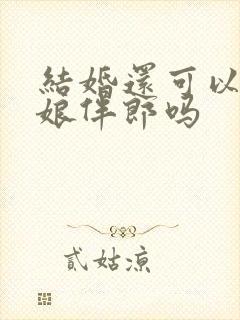 結婚還可以
娘伴郎吗
貳姑凉